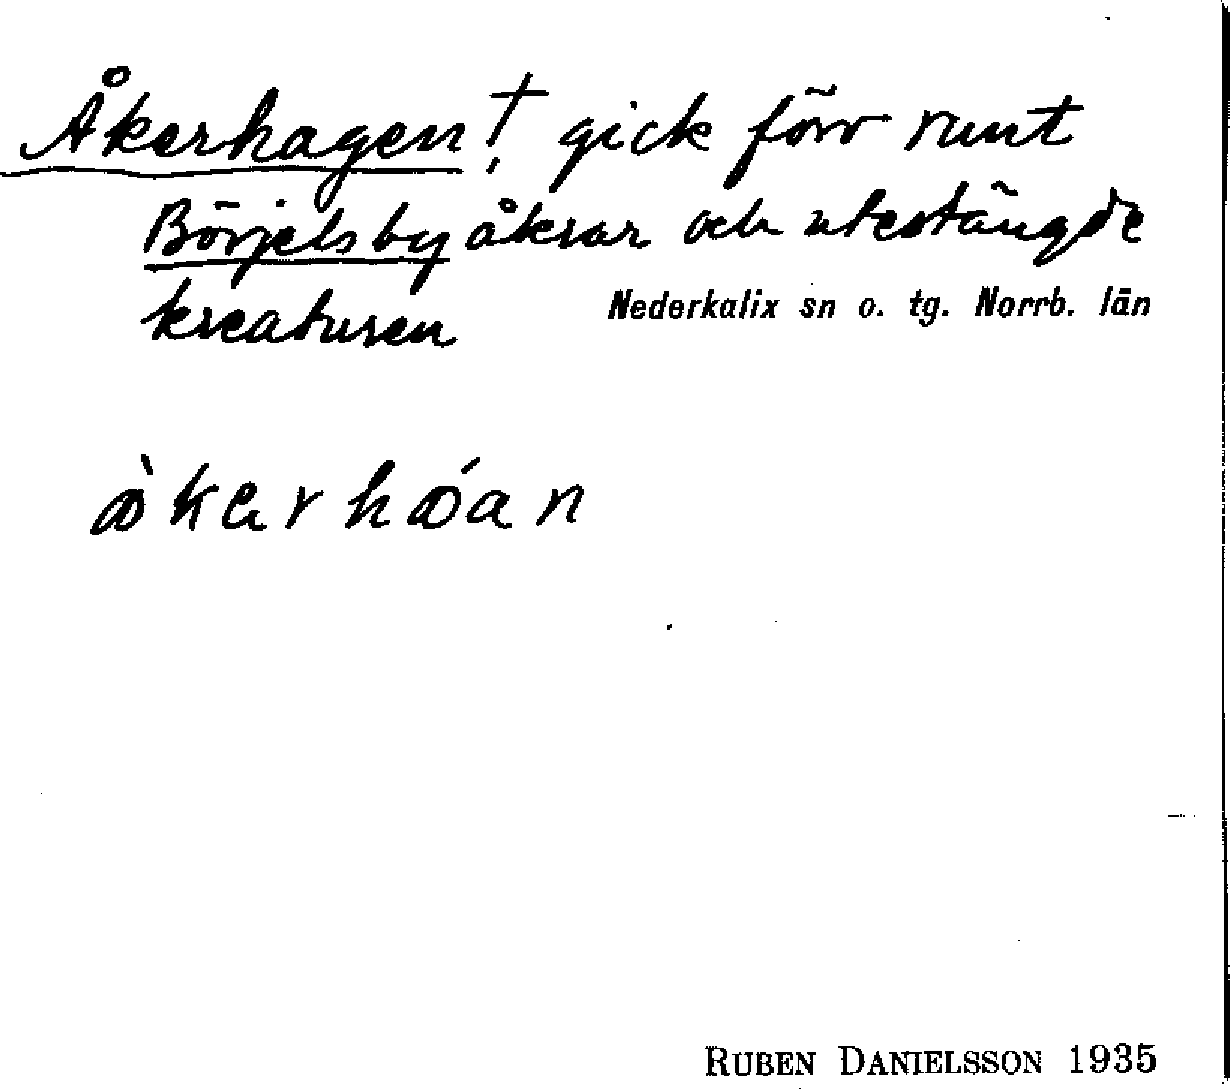 Åkerhagen † gick förr runt
Börjelsby åkrar och utestängde
kreaturen
Nederkalix sn o. tg. Norrb. län
RUBEN DANIELSSON 1935